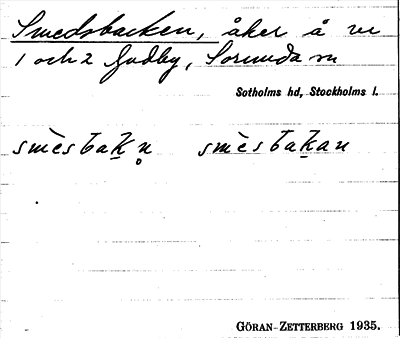 Smedsbacken, åker å nr
1 och 2 Gudby, Sorunda sn
Sotholms hd, Stockholms l.
smèsbaḵn̥ smèsbaḵan
GÖRAN ZETTERBERG 1935.